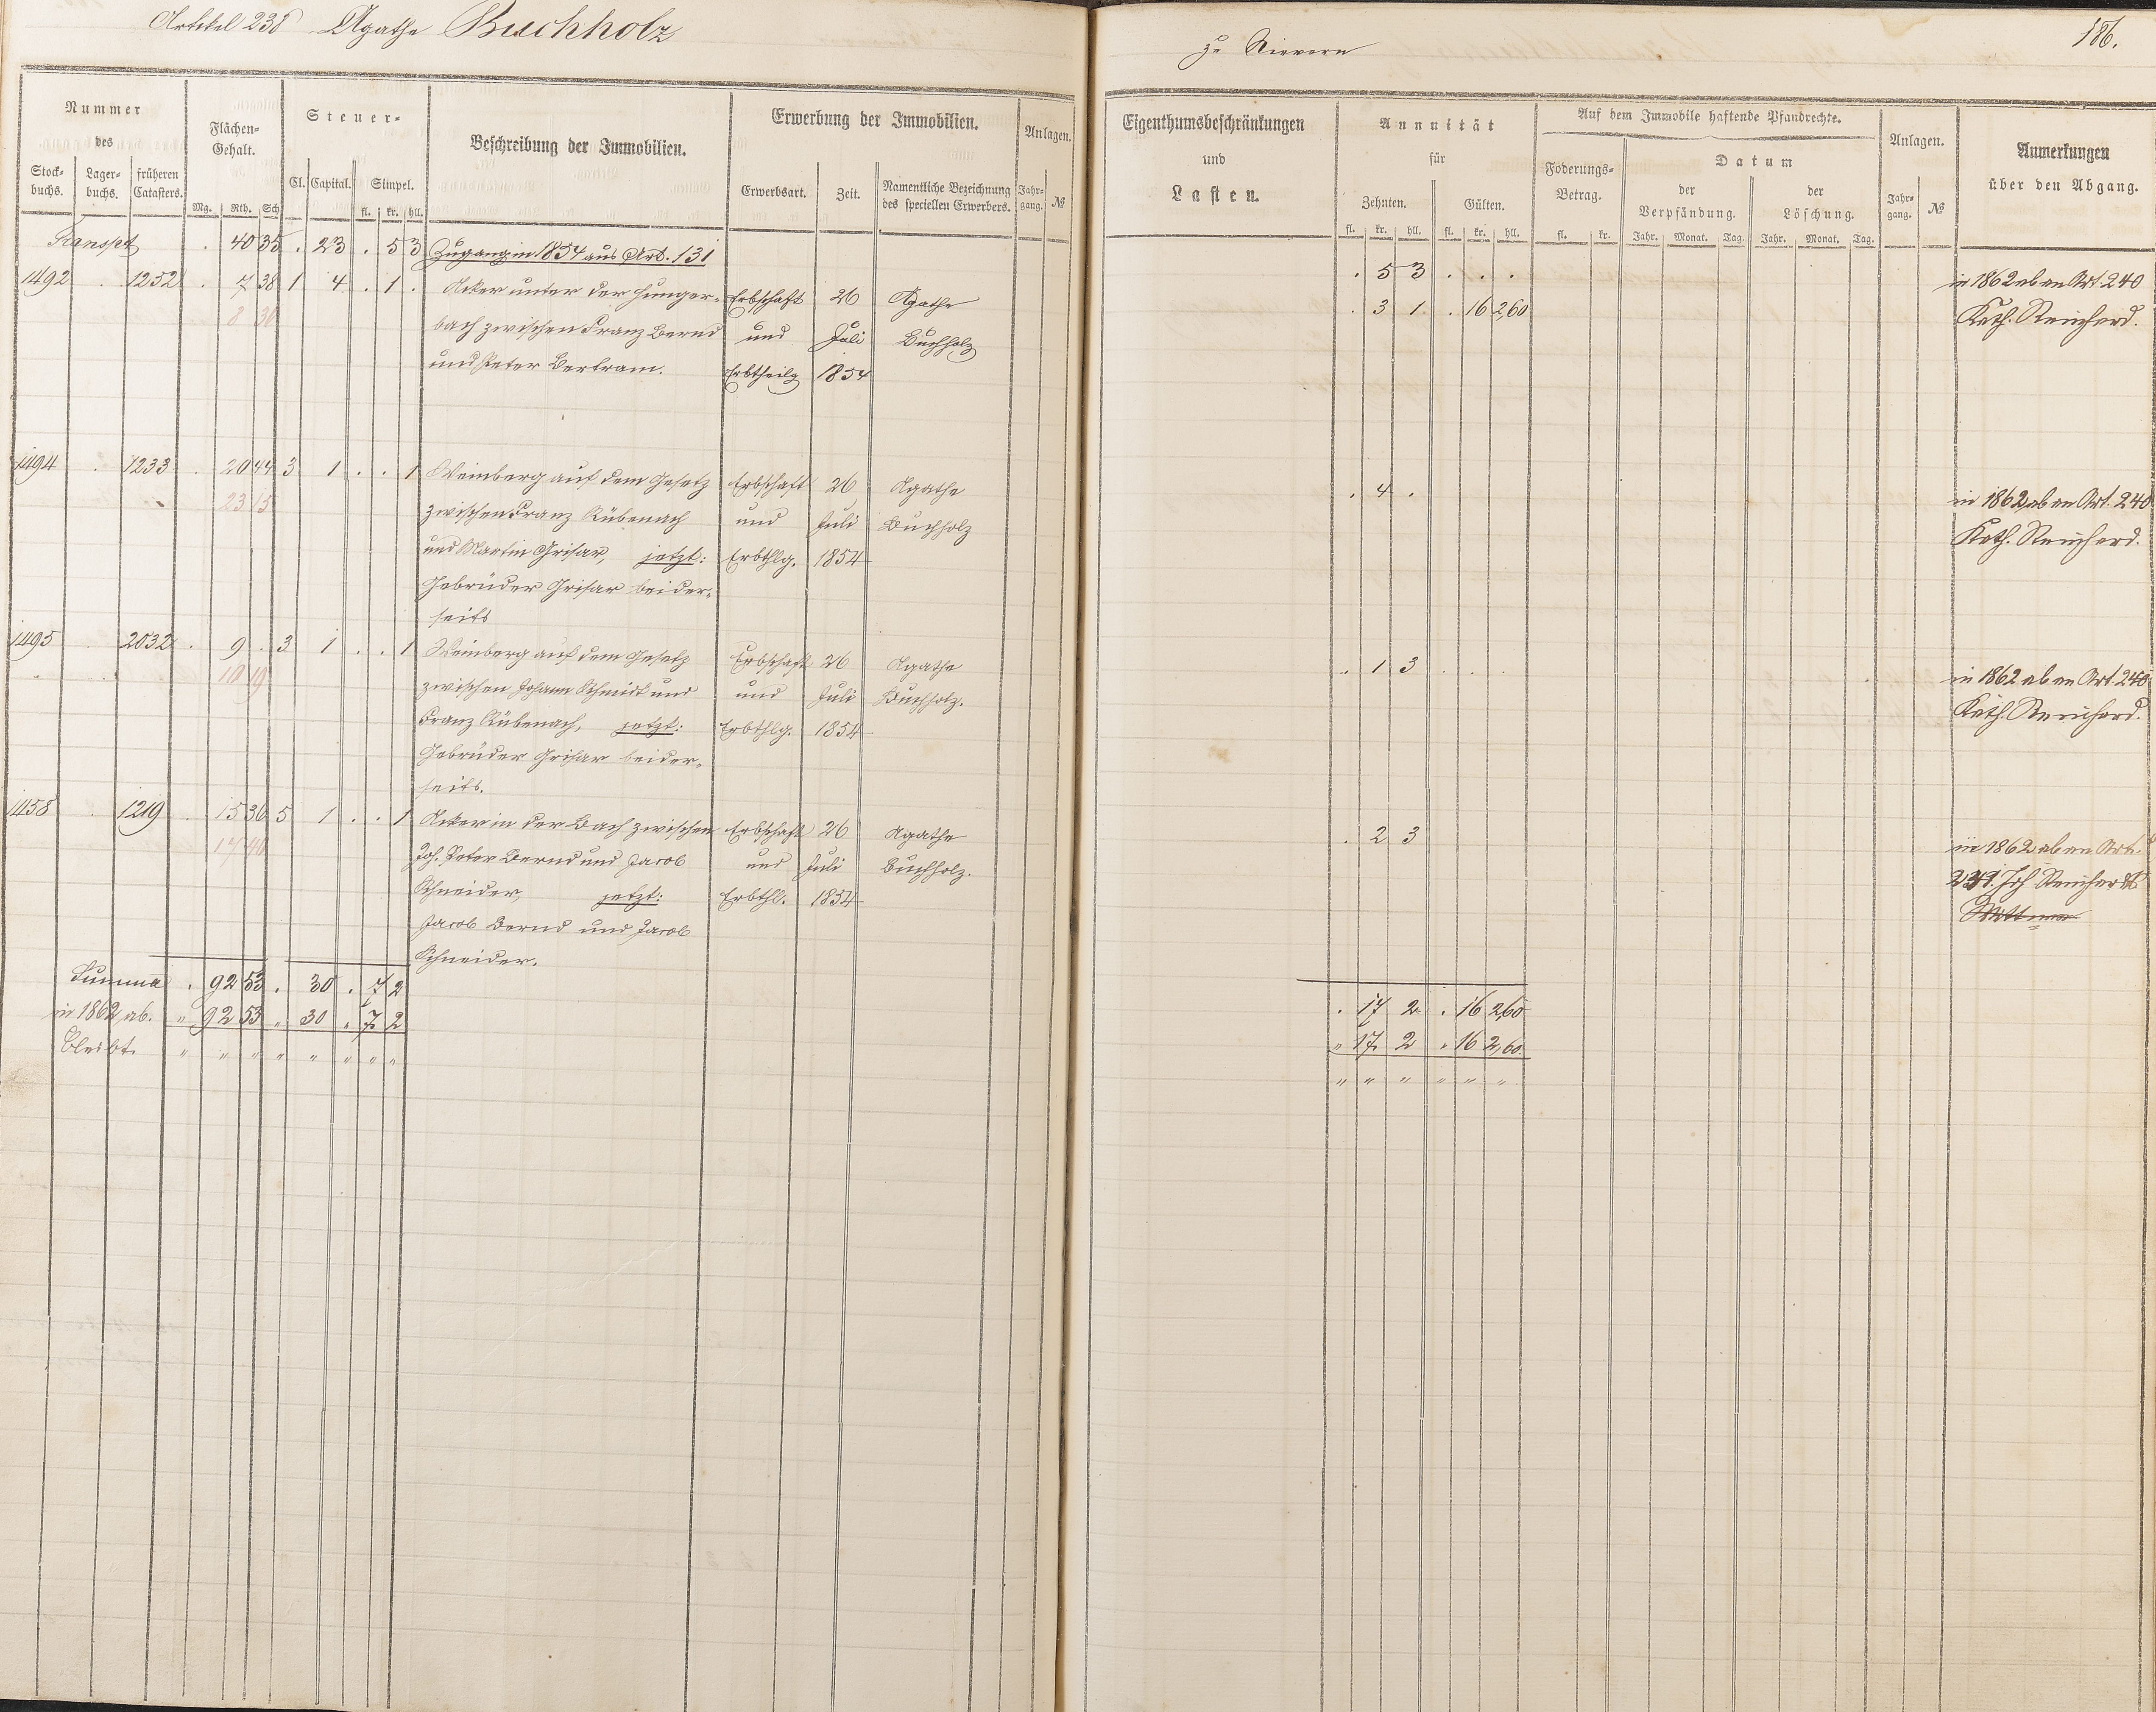 Artikel 238 Agathe Buchholz
Nummer
des
Stock-
buchs.
Lager-
buchs.
früheren
Catasters.
Flächen-
Gehalt.
Mg. Rth. Sch
Steuer-
Cl. Capital. Simpel.
fl. kr. hll.
Beschreibung der Immobilien.
Erwerbung der Immobilien.
Erwerbsart. Zeit.
Namentliche Bezeichnung
des speciellen Erwerbers.
Anlagen.
Jahr-
gang. №
Transpt . 40 35 . 23 . 5 3 Zugang in 1854 aus Art. 131
1492 . 1252 . 7 38 1 4 . 1 . Acker unter der Hunger- Erbschaft 26 Agathe
8 30 bach zwischen Franz Bernd und Juli Buchholz
und Peter Bertram. Erbtheilg 1854
1494 . 1233 . 20 44 3 1 . . 1 Weinberg auf dem Gesetz Erbschaft 26 Agathe
23 15 zwischen Franz Rübenach und Juli Buchholz
und Martin Grisar, jetzt: Erbthlg. 1854
Gebrüder Grisar beider-
seits
1495 . 2032 . 9 . 3 1 . . 1 Weinberg auf dem Gesetz Erbschaft 26 Agathe
10 19 zwischen Johann Schmidt und und Juli Buchholz.
Franz Rübenach, jetzt: Erbthlg. 1854
Gebrüder Grisar beider-
seits.
1458 . 1219 . 15 36 5 1 . . 1 Acker in der Bach zwischen Erbschaft 26 Agathe
17 40 Joh. Peter Bernd und Jacob und Juli Buchholz.
Schneider, jetzt: Erbthl. 1854
Jacob Bernd und Jacob
Schneider.
Summa . 92 53 . 30 . 7 2
in 1862 ab. " 92 53 " 30 " 7 2
bleibt. " " " " " " " "
zu Nievern
186.
Eigenthumsbeschränkungen
und
Lasten.
Annuität
für
Zehnten. Gülten.
fl. kr. hll. fl. kr. hll.
Auf dem Immobile haftende Pfandrechte.
Foderungs-
Betrag.
fl. kr.
Datum
der
Verpfändung.
Jahr. Monat. Tag.
der
Löschung.
Jahr. Monat. Tag.
Anlagen.
Jahr-
gang. №
Anmerkungen
über den Abgang.
. 5 3 . . .
. 3 1 . 16 2,60 in 1862 ab an Art. 240
Kath. Reinhard.
. 4 . in 1862 ab an Art. 240
Kath. Reinhard.
. 1 3 in 1862 ab an Art. 240
Kath. Reinhard.
. 2 3 in 1862 ab an Art.
239. Joh Reinhard
. 17 2 . 16 2,60
" 17 2 " 16 2,60.
" " " " " "